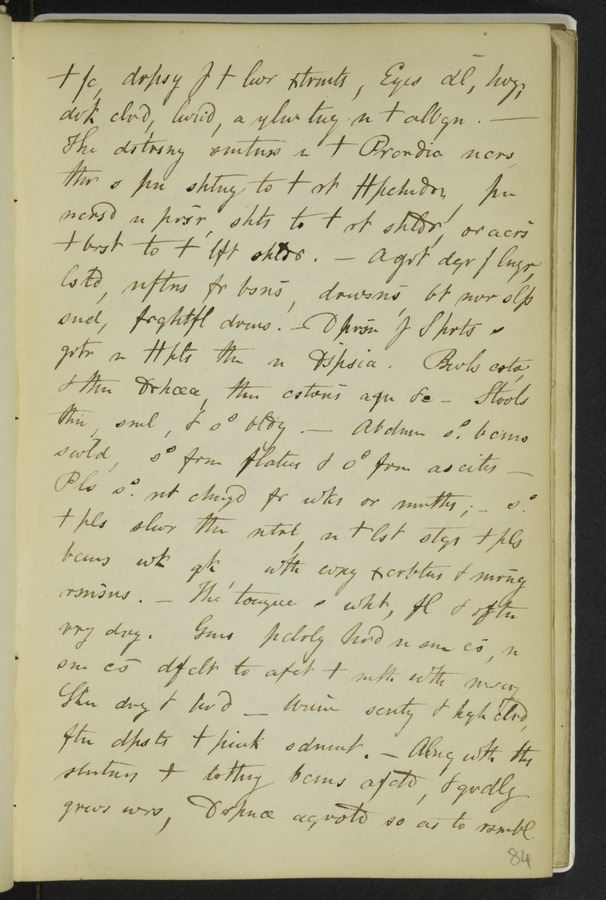 + fc, drpsy f + lwr xtrmts, Eyes dl, hvy,
drk clrd, lvrid, a ylw tng n + albgn. —
The dstrsng smtms n + Prcrdia ncrs,
thr s pn shtng to + rt Hpchndr, pn
ncrsd n prsr, shts to + rt shldr, or acrs
+ brst to + lft shldr. — A grt dgr f lngr,
Cstd, nftns fr bsns, drwsns, bt nvr slp
snd, frghtfl drms. — Dprsn f Sprts s
grtr n Hpts thn n Dspsia. Bwls cstv,
& thn Drhœa, thn cstvns agn &c — Stools
thn, sml, & so bldy. — Abdmn so. bcms
swld, so frm flatus & so frm ascites —
Pls so. nt chngd fr wks or mnths; — so.
+ pls slwr thn ntrl, n + lst stgs + pls
bcms wk qk wth evng xcrbtns & mrng
rmsns. — The tongue s wht, fl & oftn
vry dry. Gms pclrly hrd n sm cs, n
sm cs dfclt to afct + mth wth mrcry
Skn dry & hrd — Urine scnty & hgh clrd,
ftn dpsts + pink sdmnt. — Alng wth ths
smtms + lvr bcms afctd, & grdlly
grws wrs, Dspnœ agrvtd so as to rsmbl
84